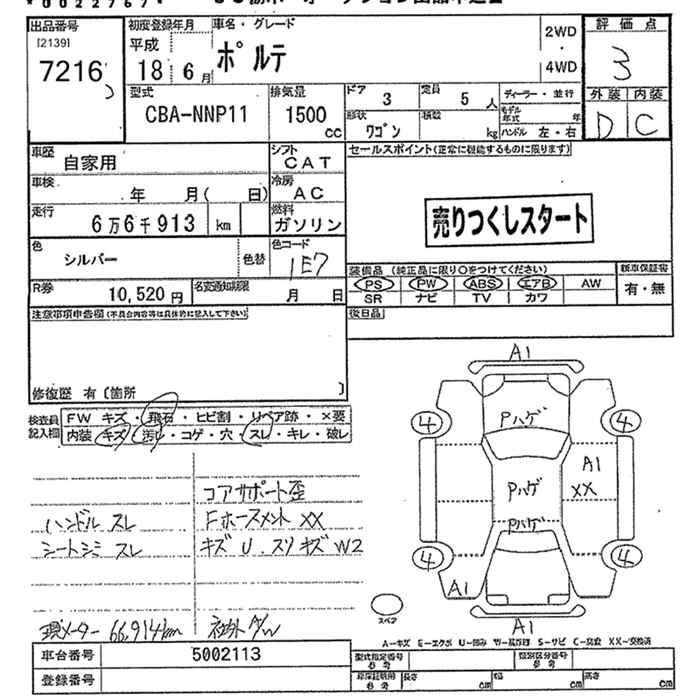 出品番号
[2139]
7216
初度登録年月
平成
18 6 月
車名・グレード
ポルテ
2WD
・
4WD
評価点
3
外装 内装
D C
型式
CBA-NNP11
排気量
1500
cc
ドア
3
定員
5 人
形状
ワゴン
積載
kg
ディーラー・並行
モデル年式 年
ハンドル 左・右
車歴
自家用
シフト
CAT
車検
年 月( 日)
冷房
AC
走行
6万6千913 km
燃料
ガソリン
色
シルバー
色替
色コード
1E7
R券
10,520 円
名変通知期限
月 日
セールスポイント(正常に機能するものに限ります)
売りつくしスタート
装備品 (純正品に限り○をつけてください)
PS PW ABS エアB AW
SR ナビ TV カワ
新車保証書
有・無
後日品
注意事項申告欄(不具合内容等は具体的に記入して下さい)
修復歴 有〔箇所 〕
検査員記入欄
FW キズ・飛石・ヒビ割・リペア跡・×要
内装 キズ・汚し・コゲ・穴・スレ・キレ・破レ
コアサポート歪
ハンドル スレ
Fホースメント XX
シートシミ スレ
キズU.スリキズW2
現メーター 66,914km
社外A/W
A1
4
4
Pハゲ
A1
XX
Pハゲ
Pハゲ
4
4
A1
A1
スペア
A−キズ E−エクボ U−凹み W−板修跡 S−サビ C−腐食 XX−交換済
車台番号
5002113
登録番号
型式指定番号
参考
類別区分番号
参考
長さ
cm
幅
cm
高さ
cm